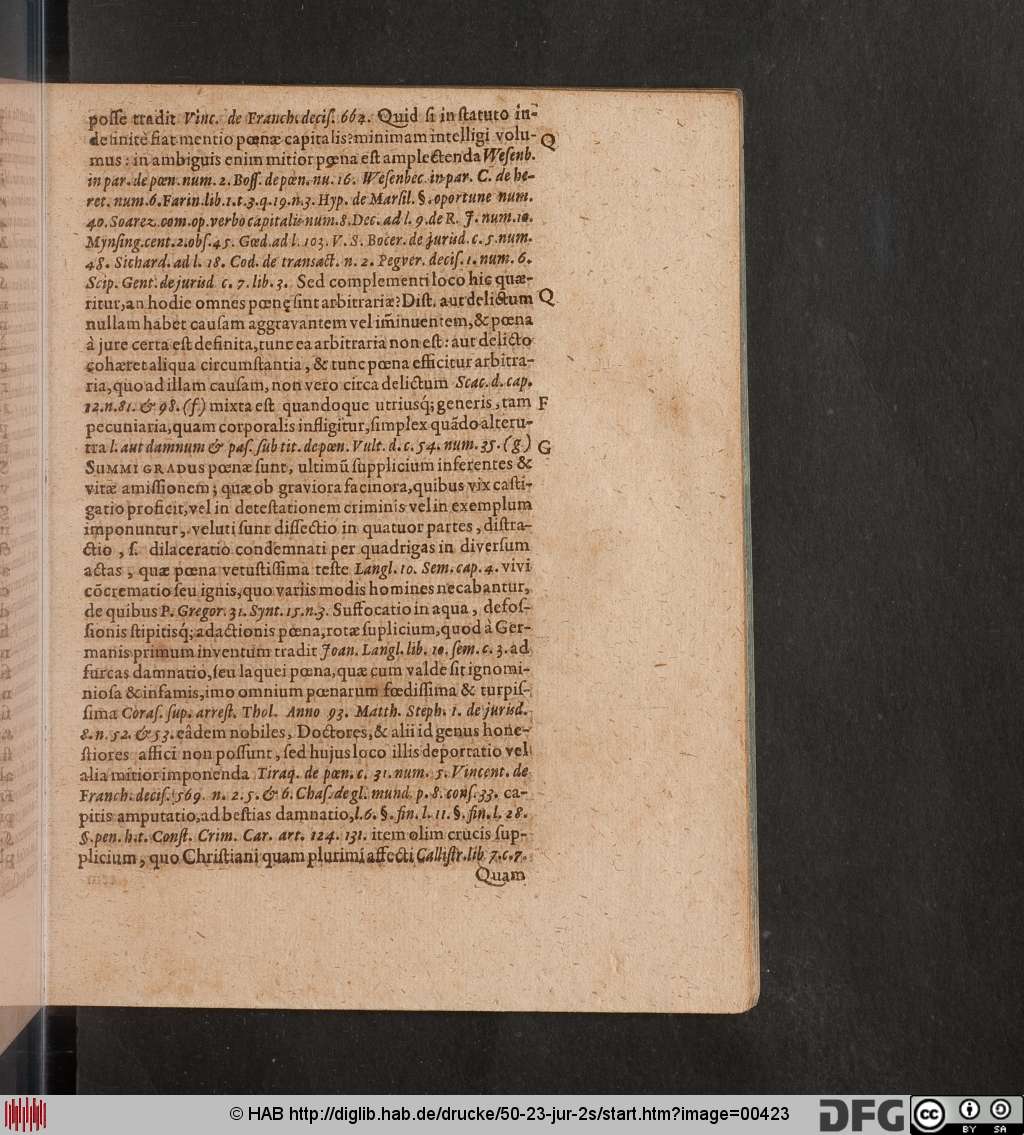 posse tradit Vinc. de Franch. decis. 662. Quid si in statuto in-
definitè fiat mentio pœnæ capitalis? minimam intelligi volu- Q
mus: in ambiguis enim mitior pœna est amplectenda Wesenb.
in par. de pœn. num. 2. Boss. de pœn. nu. 16. Wesenbec. in par. C. de he-
ret. num. 6. Farin. lib. 1. t. 3. q. 19. n. 3. Hyp. de Marsil. §. oportune num.
40. Soarez. com. op. verbo capitalis num. 8. Dec. ad l. 9. de R. J. num. 10.
Mynsing. cent. 2. obs. 45. Gœd. ad l. 103. V. S. Bocer. de jurisd. c. 5. num.
48. Sichard. ad l. 18. Cod. de transact. n. 2. Pegver. decis. 1. num. 6.
Scip. Gent. de jurisd c. 7. lib. 3. Sed complementi loco hic quæ-
ritur, an hodie omnes pœnę sint arbitrariæ? Dist. aut delictum Q
nullam habet causam aggravantem vel im̃inuentem, & pœna
à jure certa est definita, tunc ea arbitraria non est: aut delicto
cohæret aliqua circumstantia, & tunc pœna efficitur arbitra-
ria, quo ad illam causam, non vero circa delictum Scac. d. cap.
12. n. 81. & 98. (f) mixta est quandoque utriusq; generis, tam F
pecuniaria, quam corporalis infligitur, simplex quãdo alteru-
tra l. aut damnum & pas. sub tit. de pœn. Vult. d. c. 54. num. 35. (g) G
SUMMI GRADUS pœnæ sunt, ultimũ supplicium inferentes &
vitæ amissionem; quæ ob graviora facinora, quibus vix casti-
gatio proficit, vel in detestationem criminis vel in exemplum
imponuntur, veluti sunt dissectio in quatuor partes, distra-
ctio, s. dilaceratio condemnati per quadrigas in diversum
actas, quæ pœna vetustissima teste Langl. 10. Sem. cap. 4. vivi
cõcrematio seu ignis, quo variis modis homines necabantur,
de quibus P. Gregor. 31. Synt. 15. n. 3. Suffocatio in aqua, defos-
sionis stipitisq; adactionis pœna, rotæ suplicium, quod à Ger-
manis primum inventum tradit Joan. Langl. lib. 10. sem. c. 3. ad
furcas damnatio, seu laquei pœna, quæ cum valde sit ignomi-
niosa & infamis, imo omnium pœnarum fœdissima & turpis-
sima Coras. sup. arrest. Thol. Anno 93. Matth. Steph. 1. de jurisd.
8. n. 52. & 53. eâdem nobiles, Doctores, & alii id genus hone-
stiores affici non possunt, sed hujus loco illis deportatio vel
alia mitior imponenda Tiraq. de pœn. c. 31. num. 5. Vincent. de
Franch. decis. 569. n. 2. 5. & 6. Chas. de gl. mund. p. 8. cons. 33. ca-
pitis amputatio, ad bestias damnatio, l. 6. §. fin. l. 11. §. fin. l. 28.
§. pen. h. t. Const. Crim. Car. art. 124. 131. item olim crucis sup-
plicium, quo Christiani quam plurimi affecti Callistr. lib 7. c. 7.
Quam
© HAB http://diglib.hab.de/drucke/50-23-jur-2s/start.htm?image=00423
DFG
cc BY SA